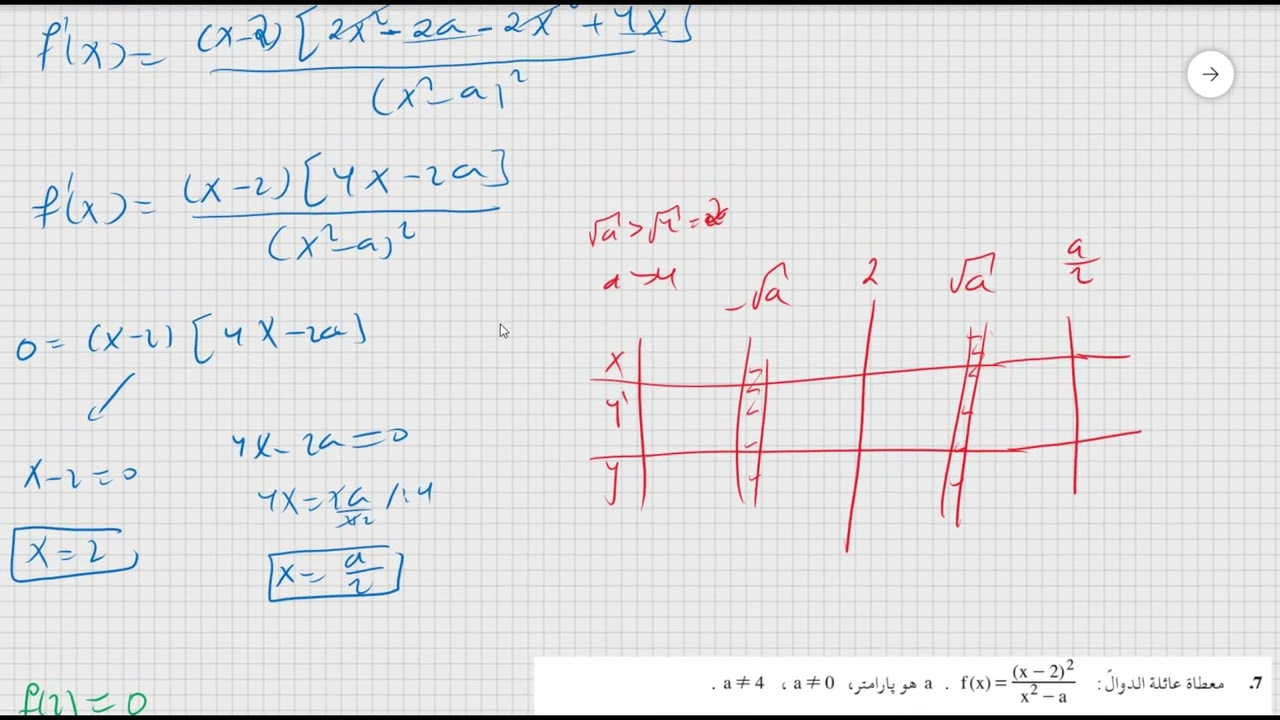 f'(x) = (x-2)[2x² - 2a - 2x² + 4x] / (x² - a)²
f'(x) = (x-2)[4x-2a] / (x²-a)²
0 = (x-2)[4x-2a]
x-2=0
x=2
4x-2a=0
4x=2a /:4
x=a/2
f(2)=0
√a > √4 = 2
a > 4
-√a 2 √a a/2
x
y'
y
.7 معطاة عائلة الدوالّ: f(x) = (x − 2)² / x² − a . a هو پارامتر، a ≠ 0 ، a ≠ 4 .